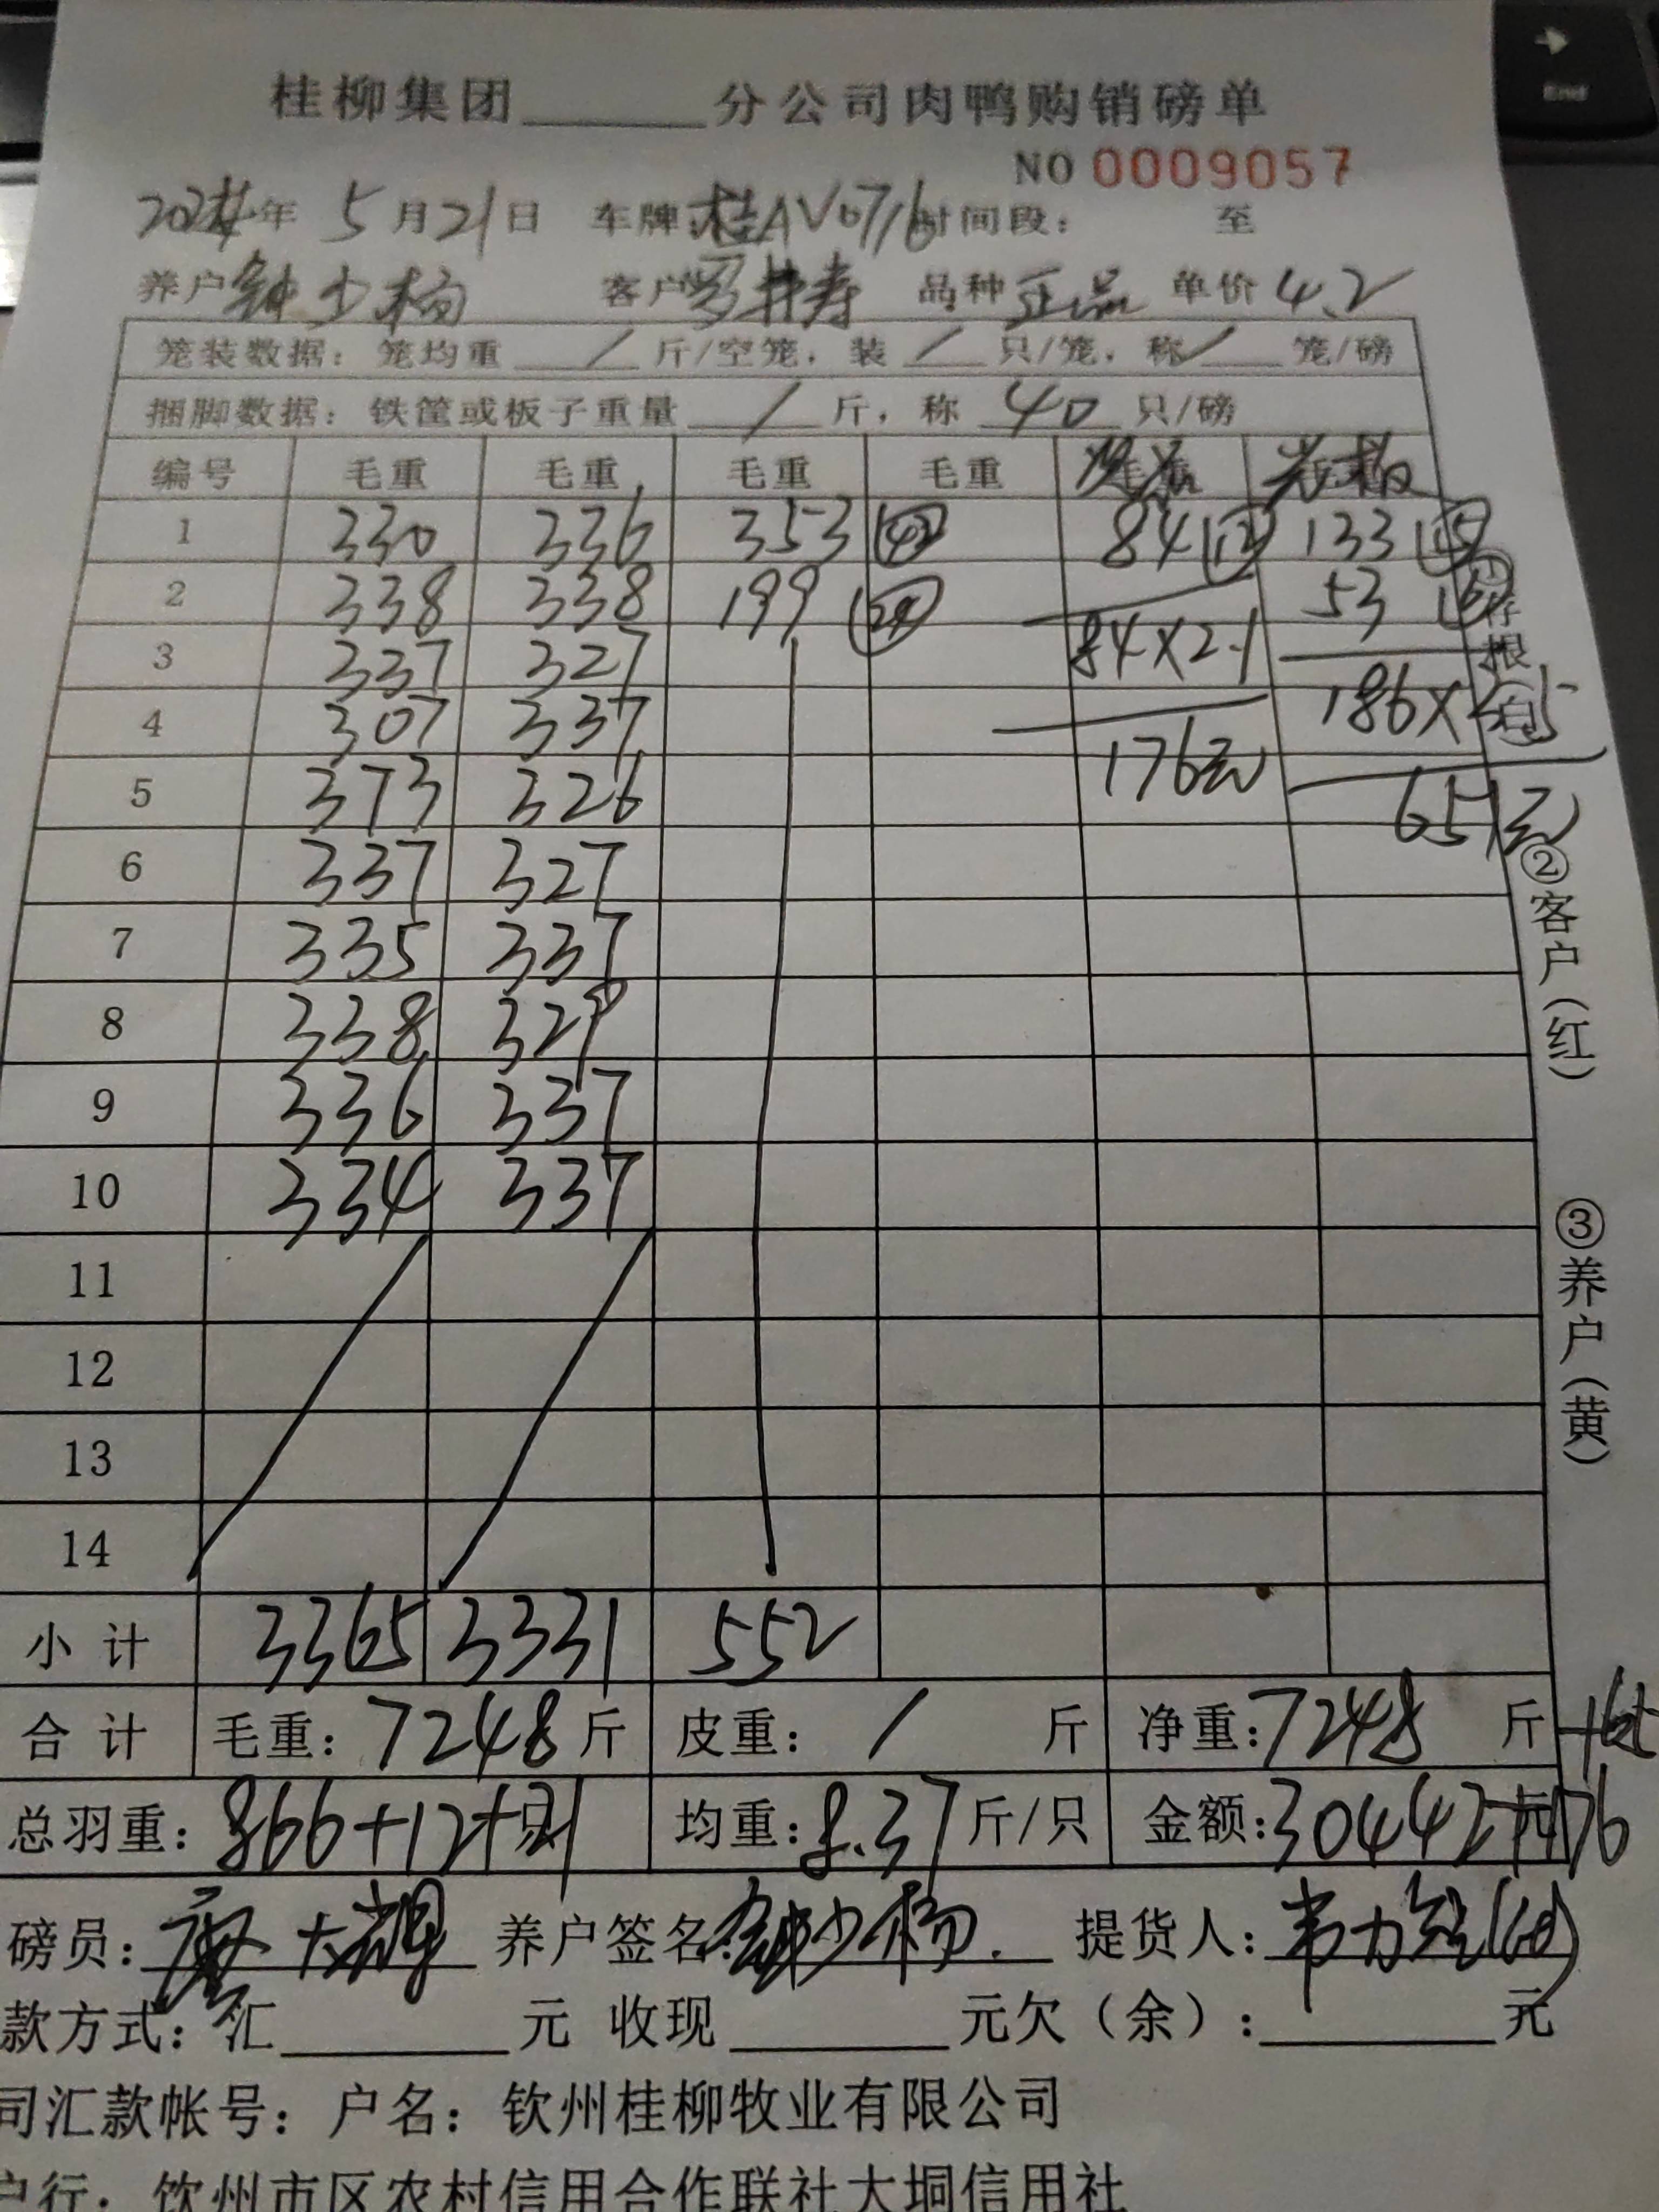 桂柳集团______分公司肉鸭购销磅单
NO 0009057
2024年 5月21日 车牌:桂AV0716 时间段: 至
养户 钟少杨 客户 罗 寿 品种 正品 单价 4.2
笼装数据: 笼均重 / 斤/空笼, 装 / 只/笼, 称 / 笼/磅
捆脚数据: 铁筐或板子重量 / 斤, 称 40 只/磅
编号 毛重 毛重 毛重 毛重
1 330 336 353 (42) 84 (12) 133 (15)
2 338 338 199 (24) 53
3 337 327 84×2.1
4 307 337 186×
5 373 326 176元 651元
6 337 327
7 335 337
8 338 329
9 336 337
10 334 337
11
12
13
14
小计 3365 3331 552
合计 毛重: 7248 斤 皮重: / 斤 净重: 7248 斤
总羽重: 866+12+21 只 均重: 8.37 斤/只 金额: 30442 元 +176
磅员: 廖大 养户签名: 钟少杨 提货人: 韦力
款方式: 汇______元 收现______元欠(余):______元
司汇款帐号: 户名: 钦州桂柳牧业有限公司
户行: 钦州市区农村信用合作联社大垌信用社
①存根(白)
②客户(红)
③养户(黄)
End